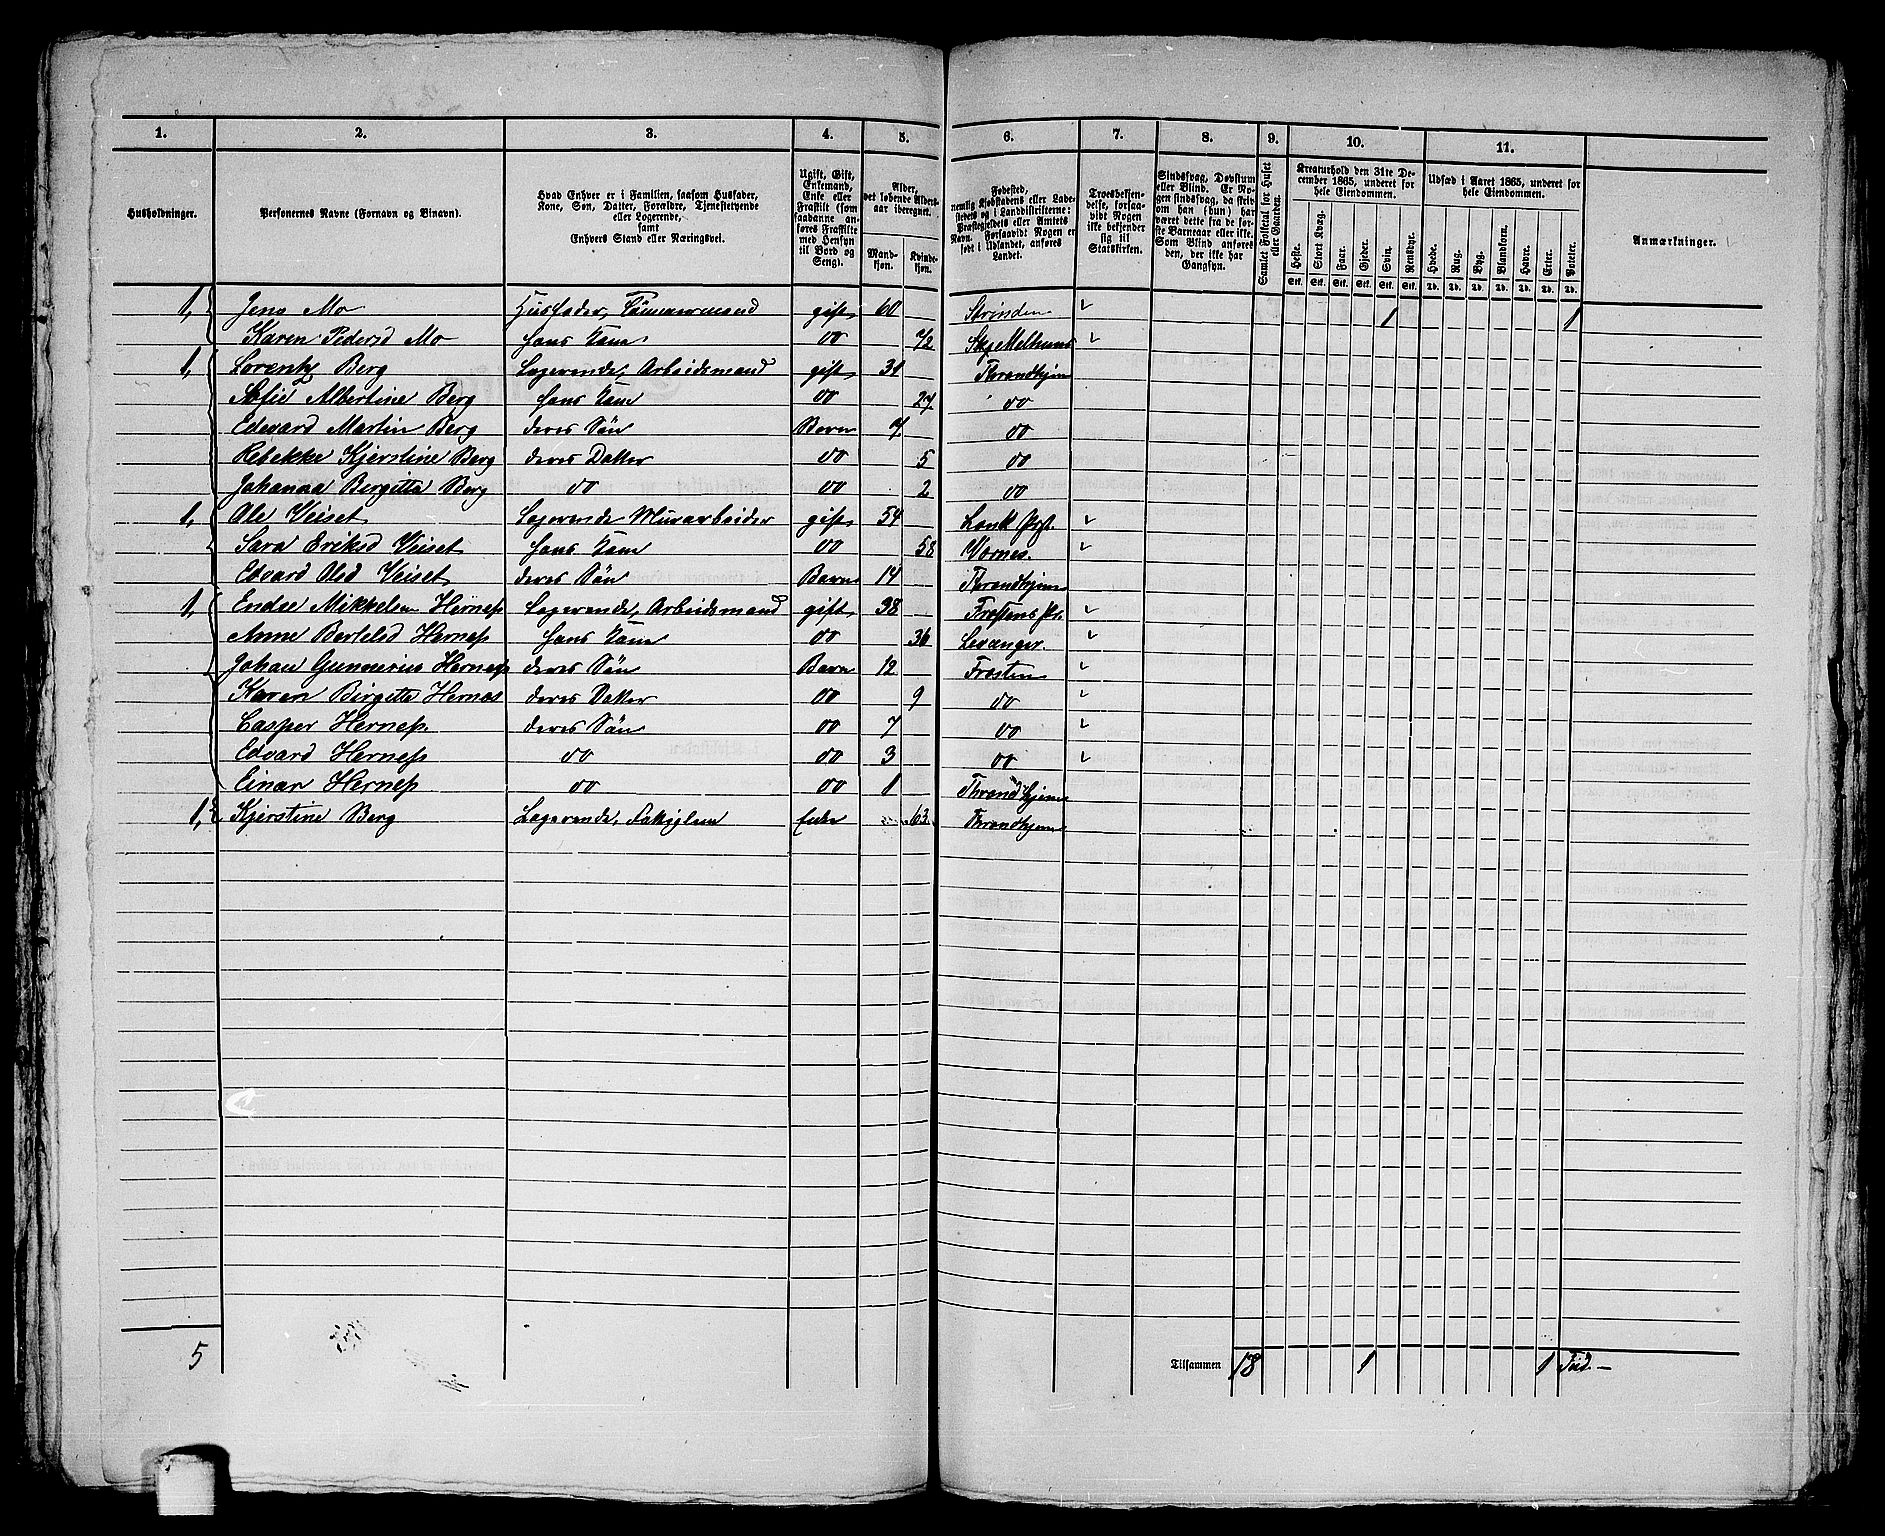 1. 2. 3. 4. 5. 6. 7. 8. 9. 10. 11.
Husholdninger.
Personernes Navne (Fornavn og Binavn).
Hvad Enhver er i Familien, saasom Husfader,
Kone, Søn, Datter, Forældre, Tjenestetyende
eller Logerende,
samt
Enhvers Stand eller Næringsvei.
Ugift, Gift,
Enkemand,
Enke eller
Fraskilt (som
saadanne an-
føres Fraskilte
med Hensyn
til Bord og
Seng).
Alder,
det løbende Alders-
aar iberegnet.
Mand-
kjøn.
Kvinde-
kjøn.
Fødested,
nemlig Kjøbstadens eller Lade-
stedets og i Landdistrikterne:
Præstegjeldets eller Amtets
Navn. Forsaavidt Nogen er
født i Udlandet, anføres
Landet.
Troesbekjen-
delse, forsaa-
vidt Nogen
ikke bekjender
sig til
Statskirken.
Sindssvag, Døvstum
eller Blind. Er No-
gen sindssvag, da skriv
om han (hun) har
været dette fra de før-
ste Barneaar eller ikke.
Som Blind anføres
den, der ikke har
Gangsyn.
Samlet Folketal for Huset
eller Gaarden.
Kreaturhold den 31te De-
cember 1865, underet for
hele Eiendommen.
Heste. Stort Kvæg. Faar. Gjeder. Svin. Rensdyr.
Stk. Stk. Stk. Stk. Stk. Stk.
Udsæd i Aaret 1865, underet for
hele Eiendommen.
Hvede. Rug. Byg. Blandkorn. Havre. Erter. Poteter.
Td. Td. Td. Td. Td. Td. Td.
Anmærkninger.
1, Jens Mo Husfader, Tømmermand gift 60 Strinden 1 1
Karen Pedersd Mo hans Kone do 72 Melhuus
1, Lorentz Berg Logerende, Arbeidsmand gift 31 Throndhjem
Sofie Albertine Berg hans Kone do 27 do
Edevard Martin Berg deres Søn Barn 7 do
Rebekke Kjerstine Berg deres Datter do 5 do
Johanna Bergitta Berg do do 2 do
1, Ole Veiset Logerende Murarbeider gift 54
Sara Eriksd Veiset hans Kone do 58 Værnes
Edvard Olsd Veiset deres Søn Barn 14 Throndhjem
1, Endre Mikkelsen Herness Logerende, Arbeidsmand gift 38 Frostens Pr.
Anne Bertelsd Herness hans Kone do 36 Levanger
Johan Gunnerius Herness deres Søn Barn 12 Frosten
Karen Birgitte Hernes deres Datter do 9 do
Casper Herness deres Søn do 7 do
Edvard Herness do do 3 do
Einar Herness do do 1 Throndhjem
1, Kjerstine Berg Logerende, Fattiglem Enke 63 Throndhjem
5 Tilsammen 18 1 1